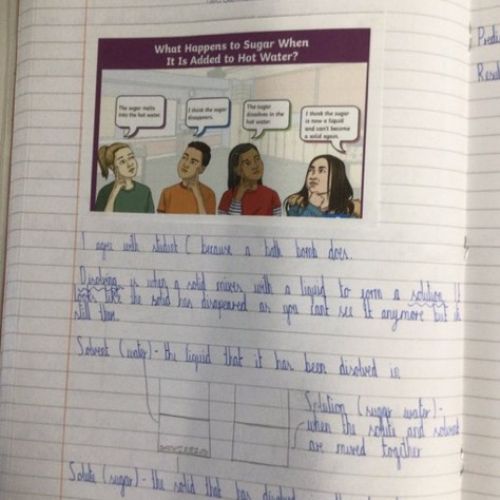 Predi
Resul
What Happens to Sugar When
It Is Added to Hot Water?
The sugar melts
into the hot water.
I think the sugar
disappears.
The sugar
dissolves in the
hot water.
I think the sugar
is now a liquid
and can't become
a solid again.
I agree with student C because a bath bomb does.
Disolving is when a solid mixes with a liquid to form a solution. It
looks like the solid has disapeared as you cant see it anymore but it
still there.
Solvent (water) - the liquid that it has been disolved in
Solution (sugar water) -
when the solute and solvent
are mixed together
Solute (sugar) - the solid that has disolved